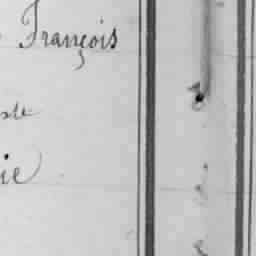 François
ste
ie